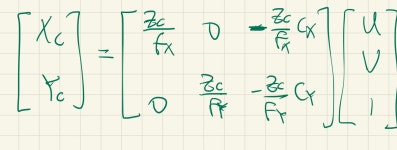 [Xc Yc] = [Zc/fx 0 -Zc/fx Cx; 0 Zc/fY -Zc/FY CY] [U V 1]